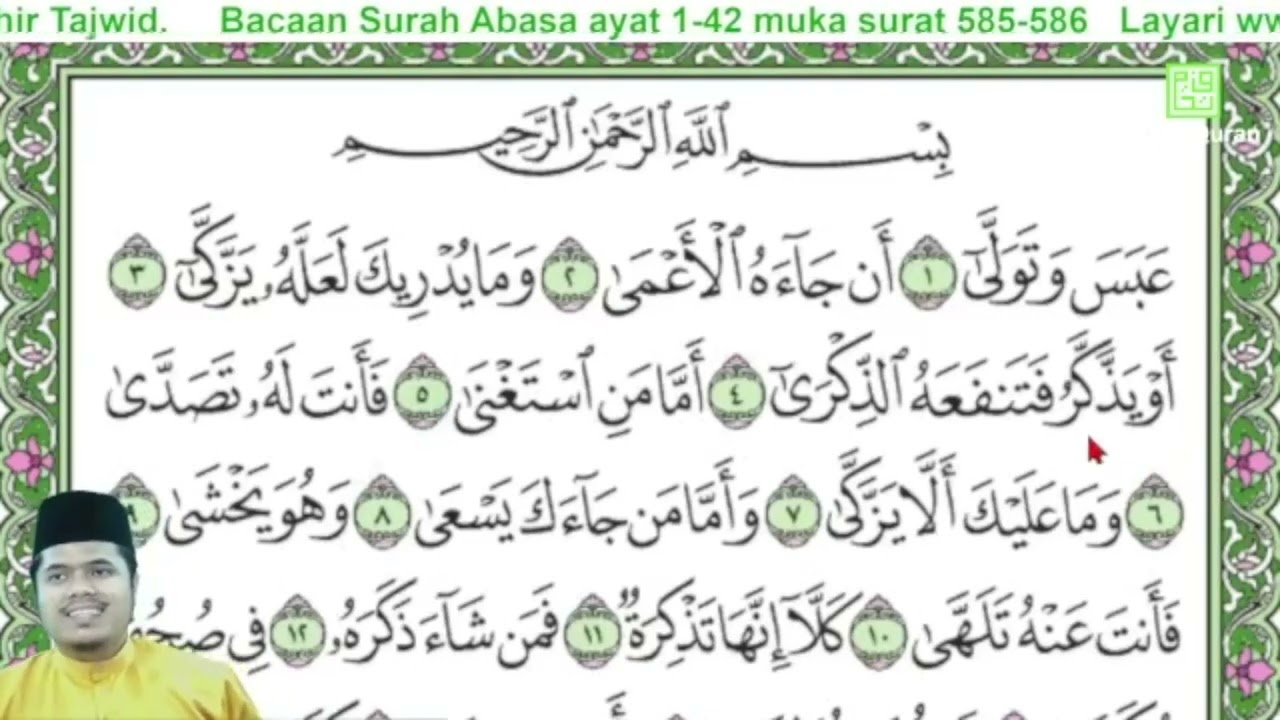 hir Tajwid. Bacaan Surah Abasa ayat 1-42 muka surat 585-586 Layari ww
بِسْمِ ٱللَّهِ ٱلرَّحْمَٰنِ ٱلرَّحِيمِ
عَبَسَ وَتَوَلَّىٰٓ ١ أَن جَآءَهُ ٱلْأَعْمَىٰ ٢ وَمَا يُدْرِيكَ لَعَلَّهُۥ يَزَّكَّىٰٓ ٣
أَوْ يَذَّكَّرُ فَتَنفَعَهُ ٱلذِّكْرَىٰٓ ٤ أَمَّا مَنِ ٱسْتَغْنَىٰ ٥ فَأَنتَ لَهُۥ تَصَدَّىٰ
٦ وَمَا عَلَيْكَ أَلَّا يَزَّكَّىٰ ٧ وَأَمَّا مَن جَآءَكَ يَسْعَىٰ ٨ وَهُوَ يَخْشَىٰ ٩
فَأَنتَ عَنْهُ تَلَهَّىٰ ١٠ كَلَّآ إِنَّهَا تَذْكِرَةٌ ١١ فَمَن شَآءَ ذَكَرَهُۥ ١٢ فِى